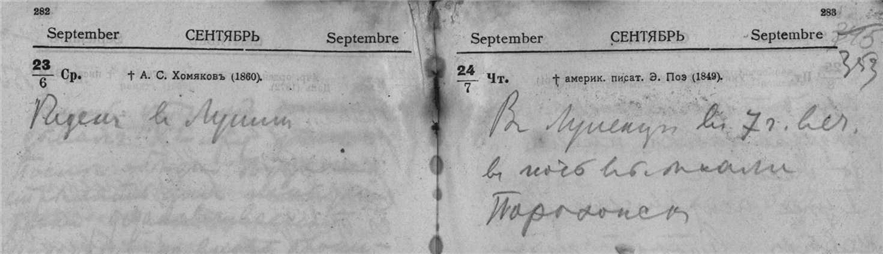 282
September СЕНТЯБРЬ Septembre
23/6 Ср. † А. С. Хомяковъ (1860).
в
283
September СЕНТЯБРЬ Septembre
315
353
24/7 Чт. † америк. писат. Э. Поэ (1849).
В Лунинец в 7 ч. веч.
в ночь выехали
Парохонск